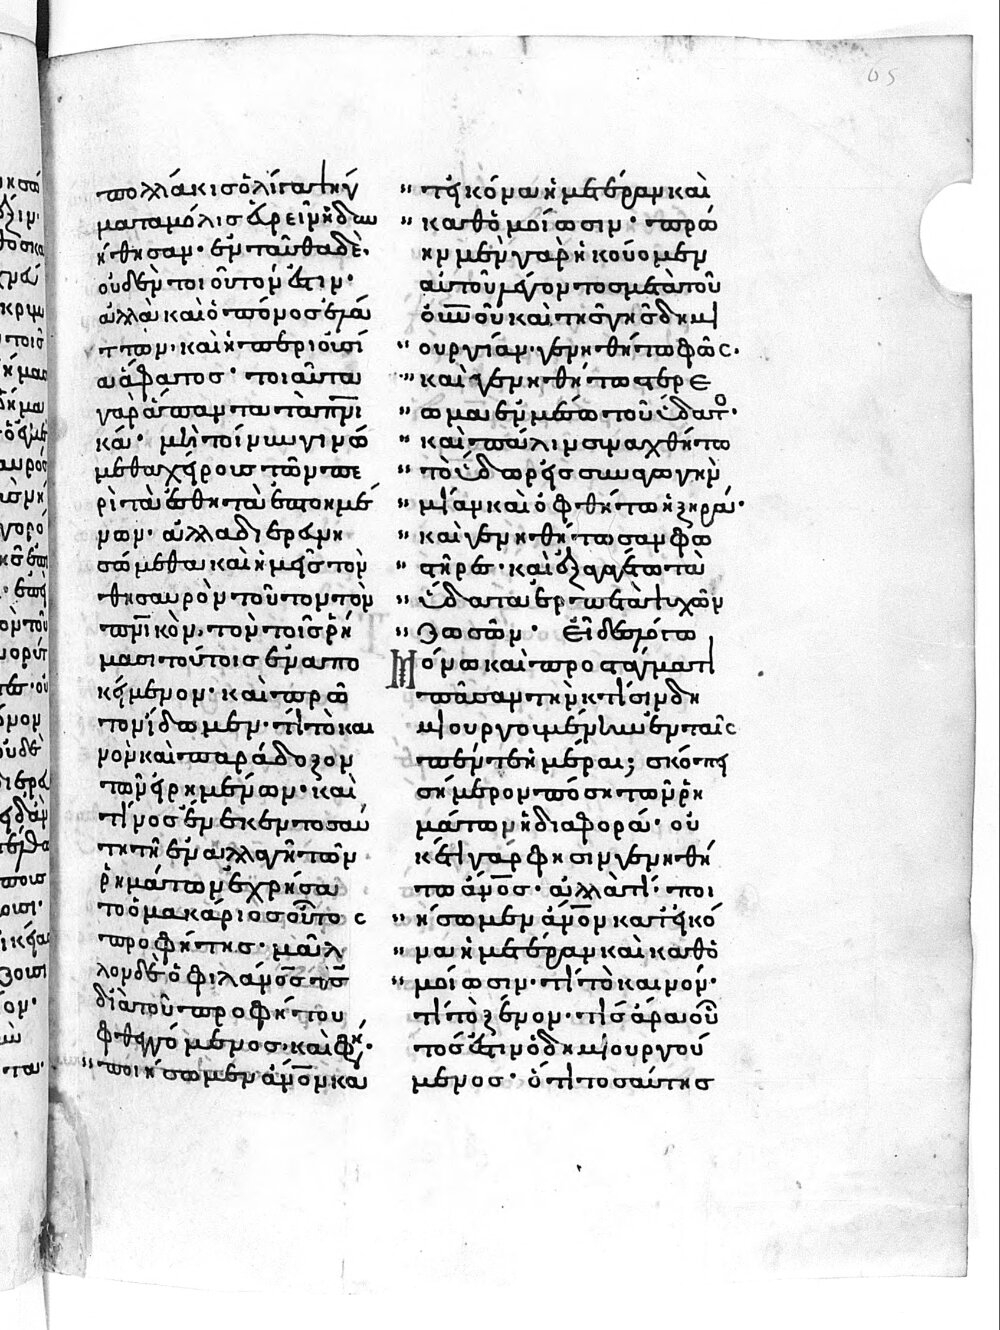 πολλάκις ὀλίγα τινὰ
ματα μόλις εὑρεῖν ἠδυ
νήθησαν· ἐνταῦθα δὲ
οὐδὲν τοιοῦτόν ἐστιν·
ἀλλὰ καὶ ὁ πόνος ἐλά
ττων· καὶ ἡ περιουσί
α ἄφατος· τοιαῦτα
γὰρ ἅπαντα τὰ πνι
κά· μὴ τοίνυν γινώ
μεθα χείρους τῶν πε
ρὶ τὰ αἰσθητὰ ἐπτοημέ
νων· ἀλλὰ διερευνη
σώμεθα καὶ ἡμεῖς τὸν
θησαυρὸν τοῦτον τὸν
πνικὸν, τὸν τοῖς ῥή
μασι τούτοις ἐναπο
κείμενον· καὶ πρῶ
τον ἴδωμεν· τί τὸ και
νὸν καὶ παράδοξον
τῶν εἰρημένων· καὶ
τίνος ἕνεκεν τοσαύ
τη τῇ ἐναλλαγῇ τῶν
ῥημάτων ἐχρήσα
το ὁ μακάριος οὗτος
προφήτης· μᾶλ
λον δὲ ὁ φιλανος θς
διὰ τοῦ προφήτου
φθεγγόμενος· καὶ φη·
" ποιήσωμεν ανον κατ
" εἰκόνα ἡμετέραν καὶ
" καθ' ὁμοίωσιν· πρώ
ην μὲν γὰρ ἠκούομεν
αὐτοῦ λέγοντος μετὰ τὴν τοῦ
ουνου καὶ τῆς γῆς δημι
" ουργίαν· γενηθήτω φῶς·
" καὶ γενηθήτω στερέ
" ωμα ἐν μέσω τοῦ ὕδατος·
" καὶ πάλιν συναχθήτω
" τὸ ὕδωρ εἰς συναγωγὴν
" μίαν καὶ ὀφθήτω ἡ ξηρά·
" καὶ γενηθήτωσαν φω
" στῆρες· καὶ ἐξαγαγέτω τὰ
" ὕδατα ἑρπετὰ ψυχῶν
" ζωσῶν· Εἶδες λόγω
μόνω καὶ προστάγματι
πᾶσαν τὴν κτίσιν δη
μιουργουμένην ἐν ταῖς
πέντε ἡμέραις; σκόπει
σήμερον πόση τῶν ῥη
μάτων ἡ διαφορά· οὐ
κέτι γάρ φησιν γενηθή
τω ανος· ἀλλὰ τί· ποι
" ήσωμεν ανον κατ' εἰκό
" να ἡμετέραν καὶ καθ' ὁ
" μοίωσιν· τί τὸ καινόν·
τί τὸ ξένον· τίς ἄρα οὗ
τός ἐστιν ὁ δημιουργού
μενος· ὅτι τοσαύτης